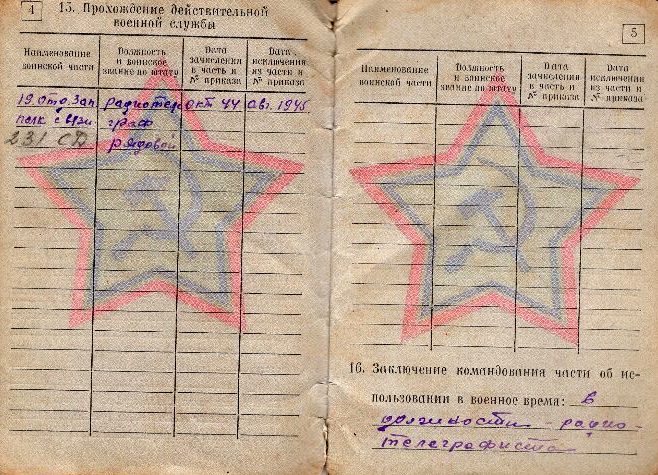 4
15. Прохождение действительной
военной службы
Наименование воинской части
Должность и воинское звание по штату
Дата зачисления в часть и № приказа
Дата исключения из части и № приказа
19 отд. Зап. радиотеле окт 44 авг. 1945
полк связи граф
231 СД рядовой
5
Наименование воинской части
Должность и воинское звание по штату
Дата зачисления в часть и № приказа
Дата исключения из части и № приказа
16. Заключение командования части об ис-
пользовании в военное время: в
должности - радио-
телеграфиста